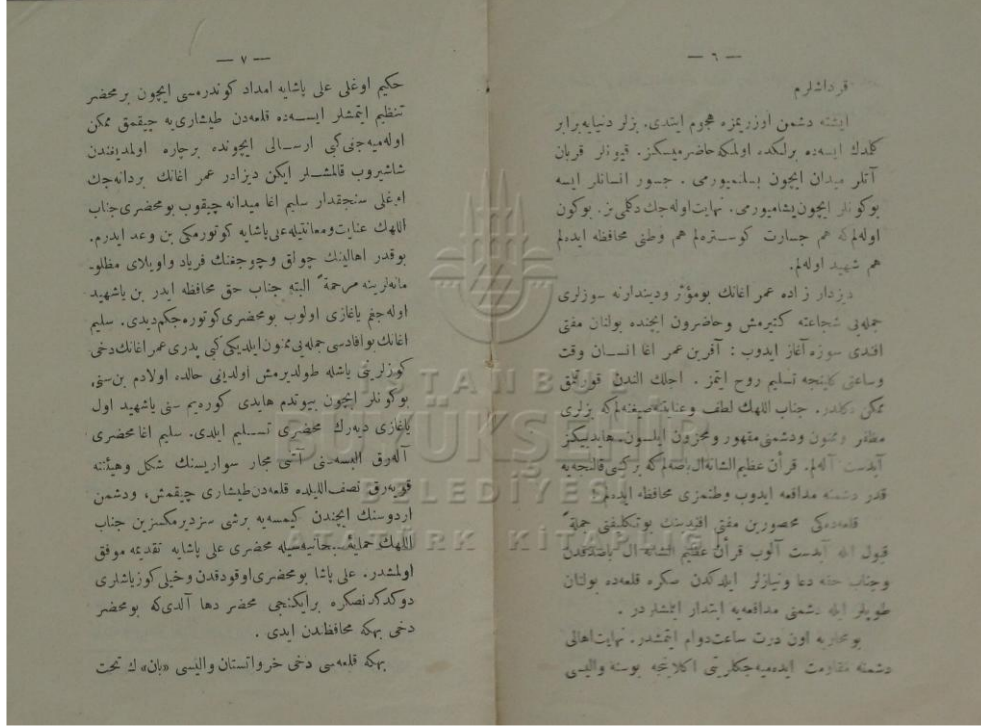 — ٦ —
قرداشلرم
ایشته دشمن اوزریمزه هجوم ایتدی. بزلر دنیایه برابر
کلدك ایسه‌ده برلکده اولمکه حاضرمیسکز. قیونلر قربان
آتلر میدان ایچون بسلنمیورمی . جسور انسانلر ایسه
بوکونلر ایچون یشامیورمی. نهایت اوله‌جك دکلمی‌یز. بوکون
اوله‌لم که هم جسارت کوستره‌لم هم وطنی محافظه ایده‌لم
هم شهید اوله‌لم.
دیزدار زاده عمر اغانك بومؤثر ودیندارنه سوزلری
جمله‌یی شجاعته کتیرمش وحاضرون ایچنده بولنان مفتی
افندی سوزه آغاز ایدوب : آفرین عمر اغا انسان وقت
وساعتی کلینجه تسلیم روح ایتمز . اجلك الندن قورتلمق
ممکن دکلدر. جناب اللهك لطف وعنایتنه صیغنه‌لم که بزلری
مظفر وممنون ودشمنی مقهور ومحزون ایلسون. هایدیکز
آبدست آله‌لم. قرآن عظیم الشانه ال باصه‌لم که برکشی قالنجه‌یه
قدر دشمنه مدافعه ایدوب وطنمزی محافظه ایده‌لم !
قلعه‌ده‌کی محصورین مفتی افندینك بوتکلیفنی جملةً
قبول ایله آبدست آلوب قرآن عظیم الشانه ال باصدقدن
وجناب حقه دعا ونیازلر ایلدکدن صکره قلعه‌ده بولنان
طوپلر ایله دشمنی مدافعه‌یه ابتدار ایتمشلردر .
بومحاربه اون درت ساعت دوام ایتمشدر. نهایت اهالی
دشمنه مقاومت ایده‌میه‌جکلرینی اکلاینجه بوسنه والیسی
— ٧ —
حکیم اوغلی علی پاشایه امداد کوندرمسی ایچون برمحضر
تنظیم ایتمشلر ایسه‌ده قلعه‌دن طیشاری‌یه چیقمق ممکن
اوله‌میه‌جنی کبی ارسالی ایچونده برچاره اولمدیغندن
شاشیروب قالمشلر ایکن دیزادر عمر اغانك بردانه‌جك
اوغلی سنجقدار سلیم اغا میدانه چیقوب بومحضری جناب
اللهك عنایت ومعاونتیله علی پاشایه کوتورمکی بن وعد ایدرم.
بوقدر اهالینك چولق وچوجغنك فریاد واویلای مظلو-
مانه‌لرینه مرحمةً البته جناب حق محافظه ایدر بن یاشهید
اوله‌جغم یاغازی اولوب بومحضری کوتوره‌جکم دیدی. سلیم
اغانك بوافاده‌سی جمله‌یی ممنون ایلدیکی کبی پدری عمر اغانك دخی
کوزلرینی یاشله طولدیرمش اولدیغی حالده اولادم بن سنی
بوکونلر ایچون بیوتدم هایدی کوره‌یم سنی یاشهید اول
یاغازی دیه‌رك محضری تسلیم ایلدی. سلیم اغا محضری
آله‌رق البسه‌سنی آتنی مجار سواریسنك شکل وهیئتنه
قویه‌رق نصف‌اللیلده قلعه‌دن طیشاری چیقمش، ودشمن
اردوسنك ایچندن کیمسه‌یه برشی سزدیرمکسزین جناب
اللهك حمایۀ جانیه‌سیله محضری علی پاشایه تقدیمه موفق
اولمشدر. علی پاشا بومحضری اوقودقدن وخیلی کوزیاشلری
دوکدکدنصکره برایکنجی محضر دها آلدی‌که بومحضر
دخی بهکه محافظندن ایدی .
بهکه قلعه‌سی دخی خرواتستان والیسی «بان»ك تحت